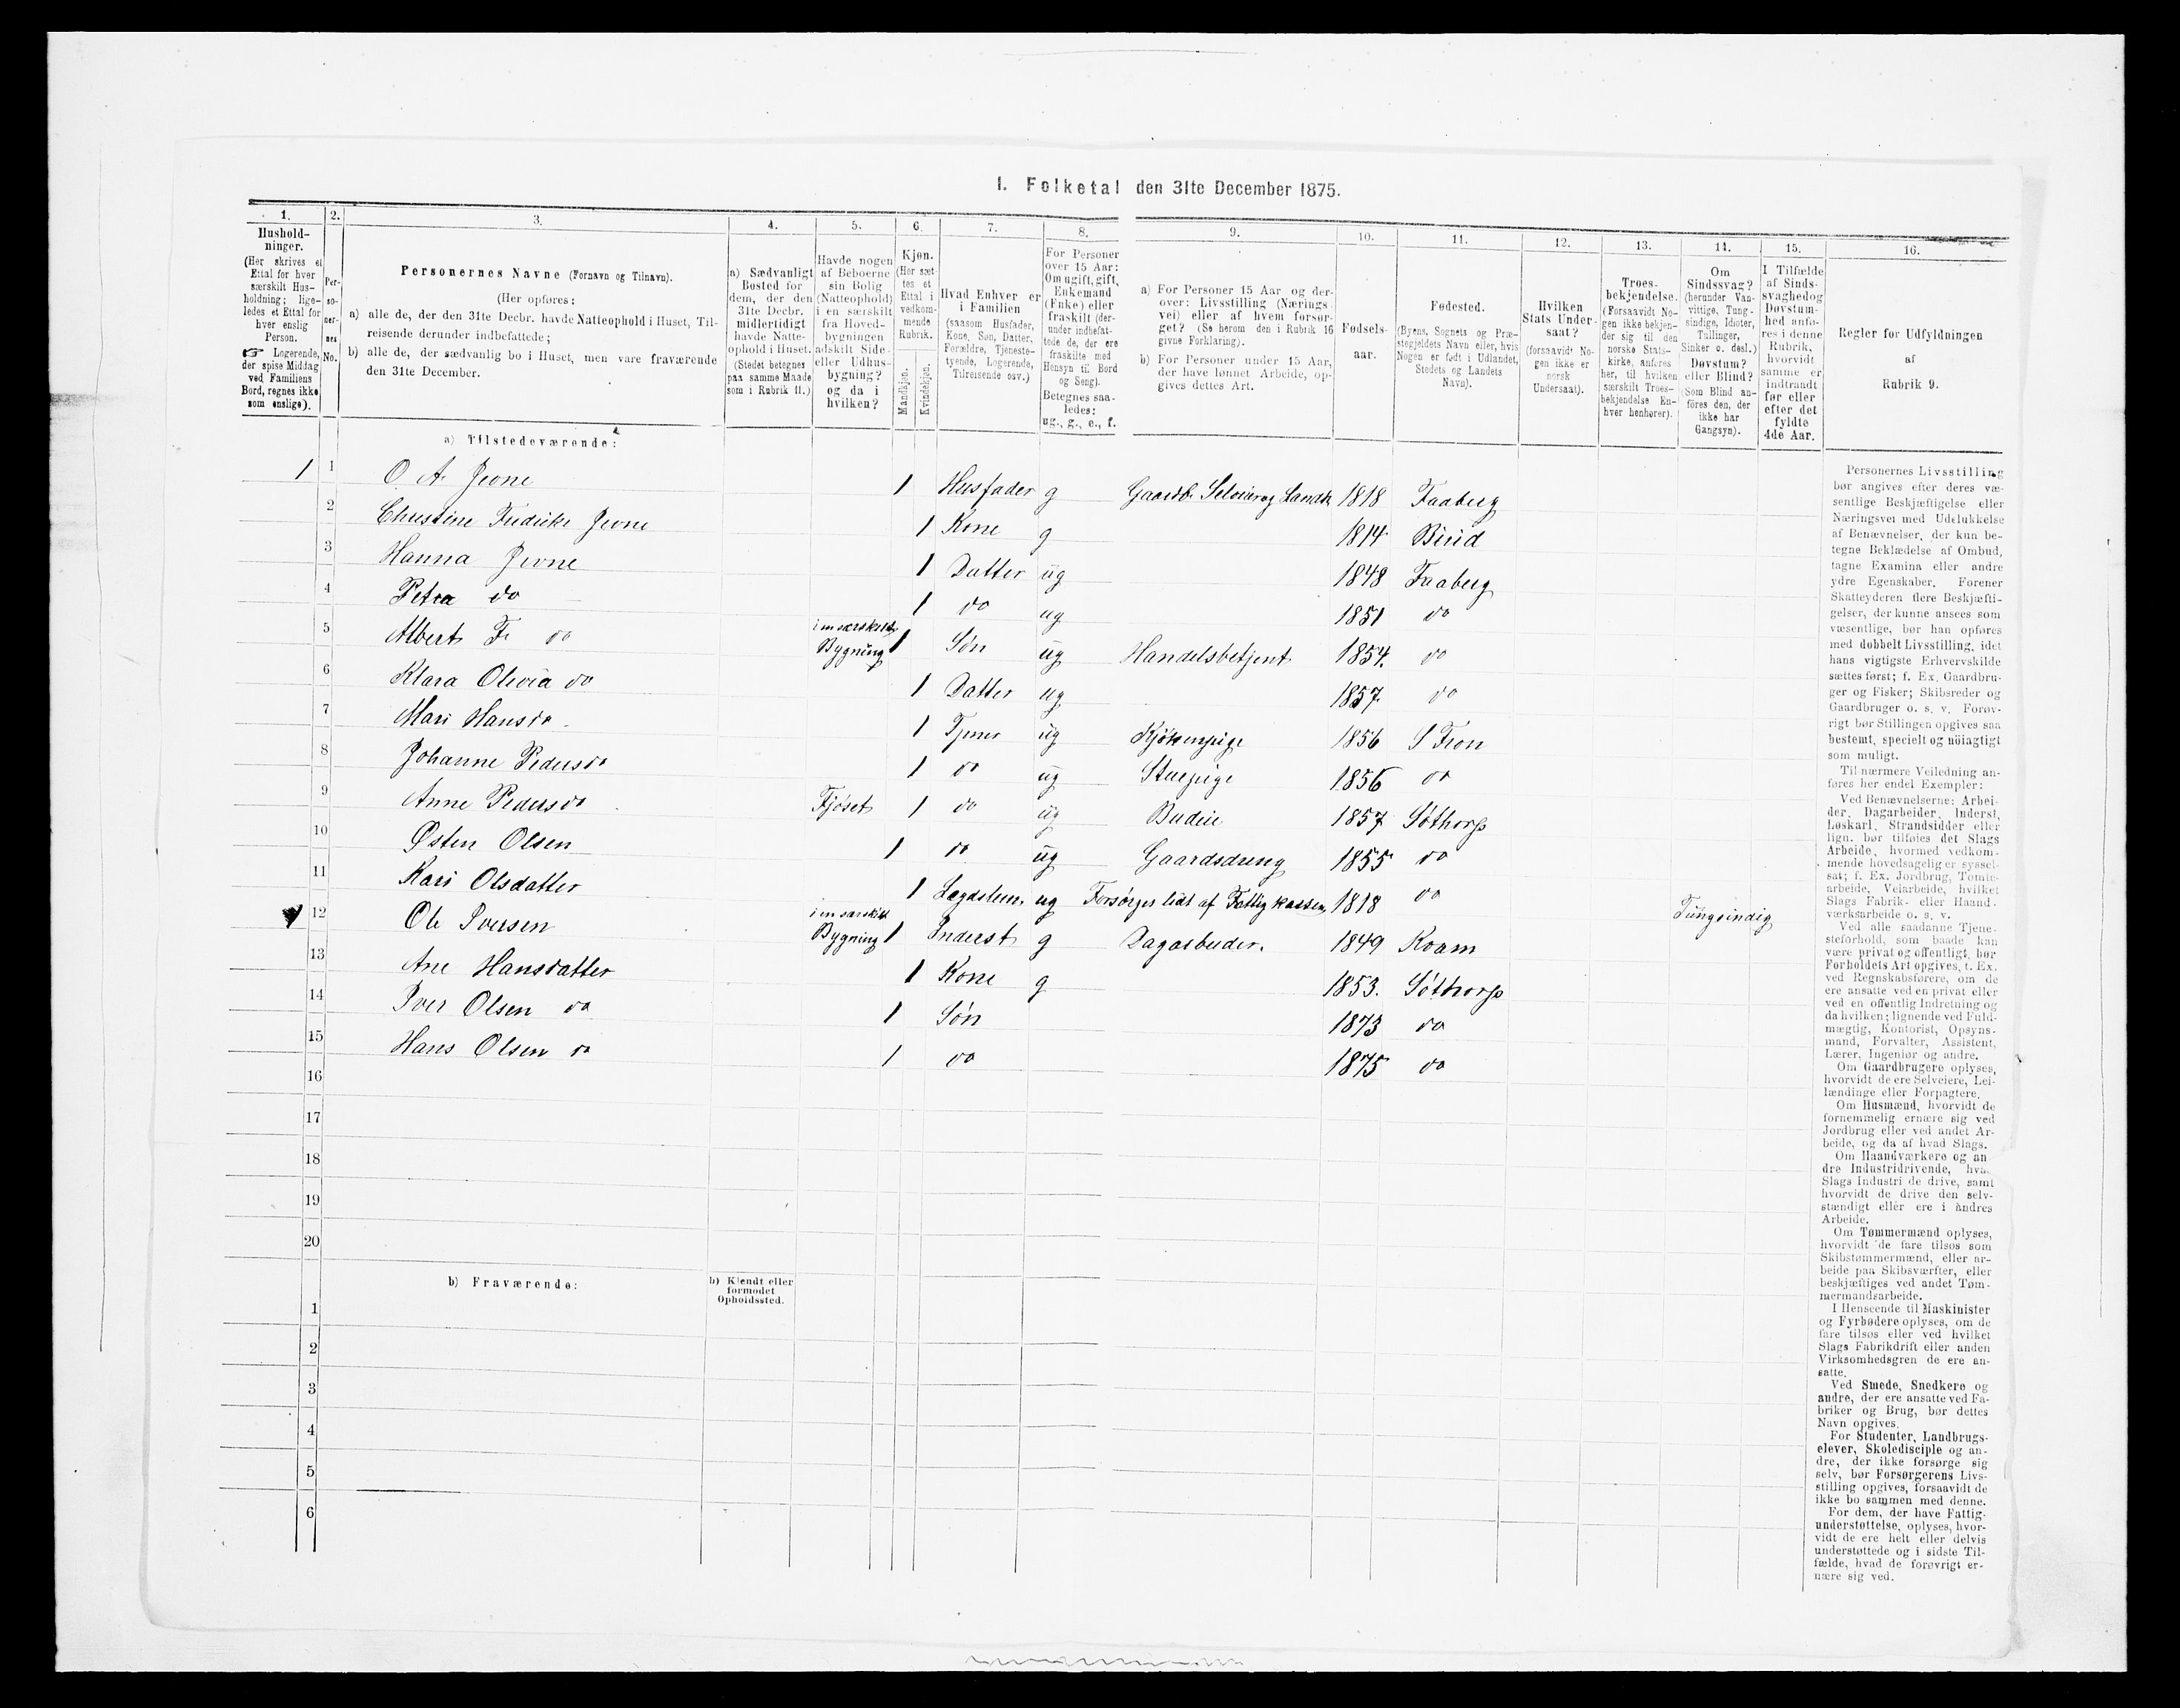 I. Folketal den 31te December 1875.
1. 2. 3. 4. 5. 6. 7. 8. 9. 10. 11. 12. 13. 14. 15. 16.
Hushold-
ninger.
(Her skrives et
Ettal for hver
særskilt Hus-
holdning; lige-
ledes et Ettal for
hver enslig
Person.
☞ Logerende,
der spise Middag
ved Familiens
Bord, regnes ikke
som enslige).
Per-
so-
ner-
nes
No.
Personernes Navne (Fornavn og Tilnavn).
(Her opføres:
a) alle de, der den 31te Decbr. havde Natteophold i Huset, Til-
reisende derunder indbefattede;
b) alle de, der sædvanlig bo i Huset, men vare fraværende
den 31te December.
a) Sædvanligt
Bosted for
dem, der den
31te Decbr.
midlertidigt
havde Natte-
ophold i Huset.
(Stedet betegnes
paa samme Maade
som i Rubrik 11.)
Havde nogen
af Beboerne
sin Bolig
(Natteophold)
i en særskilt
fra Hoved-
bygningen
adskilt Side-
eller Udhus-
bygning?
og da i
hvilken?
Kjøn.
(Her sæt-
tes et
Ettal i
vedkom-
mende
Rubrik.
Mandkjøn.
Kvindekjøn.
Hvad Enhver er
i Familien
(saasom Husfader,
Kone, Søn, Datter,
Forældre, Tjeneste-
tyende, Logerende,
Tilreisende osv.)
For Personer
over 15 Aar:
Om ugift, gift,
Enkemand
(Enke) eller
fraskilt (der-
under indbefat-
tede de, der ere
fraskilte med
Hensyn til Bord
og Seng).
Betegnes saa-
ledes:
ug., g., e., f.
a) For Personer 15 Aar og der-
over: Livsstilling (Nærings-
vei) eller af hvem forsør-
get? (Se herom den i Rubrik 16
givne Forklaring).
b) For Personer under 15 Aar,
der have lønnet Arbeide, op-
gives dettes Art.
Fødsels-
aar.
Fødested.
(Byens, Sognets og Præ-
stegjeldets Navn eller, hvis
Nogen er født i Udlandet,
Stedets og Landets
Navn).
Hvilken
Stats Under-
saat?
(forsaavidt No-
gen ikke er
norsk
Undersaat).
Troes-
bekjendelse.
(Forsaavidt No-
gen ikke bekjen-
der sig til den
norske Stats-
kirke, anføres
her, til hvilken
særskilt Troes-
bekjendelse En-
hver henhører).
Om
Sindssvag?
(herunder Van-
vittige, Tung-
sindige, Idioter,
Tullinger,
Sinker o. desl.)
Døvstum?
eller Blind?
(Som Blind an-
føres den, der
ikke har
Gangsyn).
I Tilfælde
af Sinds-
svaghed og
Døvstum-
hed anfø-
res i denne
Rubrik,
hvorvidt
samme er
indtraadt
før eller
efter det
fyldte
4de Aar.
Regler for Udfyldningen
af
Rubrik 9.
a) Tilstedeværende:
1 1 O. A. Jevne 1 Husfader g Gaardb. Selveier og Landh. 1818 Faaberg
2 Christine Fredrike Jevne 1 Kone g 1814 Birid
3 Hanna Jevne 1 Datter ug 1848 Faaberg
4 Petra do 1 do ug 1851 do
5 Albert F. do i en særskilt Bygning 1 Søn ug Handelsbetjent 1854. do
6 Klara Olivia do 1 Datter ug 1857. do
7 Mari Hansd. 1 Tjener ug Kjøkenpige 1856 S Fron
8 Johanne Pedersd. 1 do ug Stuepige 1856 do
9 Anne Pedersd. Fjøset 1 do ug Budeie 1857 Søthorp
10 Østen Olsen 1 do ug Gaardsdreng 1855 do
11 Kari Olsdatter 1 Lægdslem ug Forsørges helt af Fattigkassen 1818 do Tungsindig
12 Ole Iversen i en særskilt Bygning 1 Inderst g Dagarbeider. 1849 Kvam
13 Ane Hansdatter 1 Kone g 1853. Søthorp
14 Iver Olsen do 1 Søn 1873 do
15 Hans Olsen do 1 do 1875 do
16
17
18
19
20
b) Fraværende:
b) Kjendt eller
formodet
Opholdssted.
1
2
3
4
5
6
Personernes Livsstilling
bør angives efter deres væ-
sentlige Beskjæftigelse eller
Næringsvei med Udelukkelse
af Benævnelser, der kun be-
tegne Beklædelse af Ombud,
tagne Examina eller andre
ydre Egenskaber. Forener
Skatteyderen flere Beskjæfti-
gelser, der kunne ansees som
væsentlige, bør han opføres
med dobbelt Livsstilling, idet
hans vigtigste Erhvervskilde
sættes først; f. Ex. Gaardbru-
ger og Fisker; Skibsreder og
Gaardbruger o. s. v. Forøv-
rigt bør Stillingen opgives saa
bestemt, specielt og nöiagtigt
som muligt.
Til nærmere Veiledning an-
føres her endel Exempler:
Ved Benævnelserne: Arbei-
der, Dagarbeider, Inderst,
Løskarl, Strandsidder eller
lign. bør tilføies det Slags
Arbeide, hvormed vedkom-
mende hovedsagelig er syssel-
sat; f. Ex. Jordbrug, Tomte-
arbeide, Veiarbeide, hvilket
Slags Fabrik- eller Haand-
værksarbeide o. s. v.
Ved alle saadanne Tjene-
steforhold, som baade kan
være privat og offentligt, bør
Forholdets Art opgives, f. Ex.
ved Regnskabsførere, om de
ere ansatte ved en privat eller
ved en offentlig Indretning og
da hvilken; lignende ved Fuld-
mægtig, Kontorist, Opsyns-
mand, Forvalter, Assistent,
Lærer, Ingeniør og andre.
Om Gaardbrugere oplyses,
hvorvidt de ere Selveiere, Lei-
lændinge eller Forpagtere.
Om Husmænd, hvorvidt de
fornemmelig ernære sig ved
Jordbrug eller ved andet Ar-
beide, og da af hvad Slags.
Om Haandværkere og an
dre Industridrivende, hva
Slags Industri de drive, samt
hvorvidt de drive den selv-
stændigt eller ere i andres
Arbeide.
Om Tømmermænd oplyses,
hvorvidt de fare tilsøs som
Skibstømmermænd, eller ar-
beide paa Skibsværfter, eller
beskjæftiges ved andet Tøm-
mermandsarbeide.
I Henseende til Maskinister
og Fyrbødere oplyses, om de
fare tilsøs eller ved hvilket
Slags Fabrikdrift eller anden
Virksomhedsgren de ere an-
satte.
Ved Smede, Snedkere og
andre, der ere ansatte ved Fa-
briker og Brug, bør dettes
Navn opgives.
For Studenter, Landbrugs-
elever, Skoledisciple og an-
dre, der ikke forsørge sig
selv, bør Forsørgerens Livs-
stilling opgives, forsaavidt de
ikke bo sammen med denne.
For dem, der have Fattig-
understøttelse, oplyses, hvor-
vidt de ere helt eller delvis
understøttede og i sidste Til-
fælde, hvad de forøvrigt er-
nære sig ved.